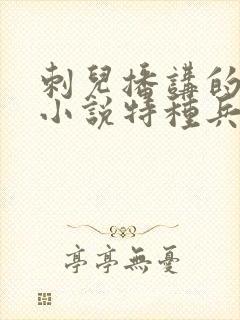 刺兒播講的
小說特種兵
亭亭無憂